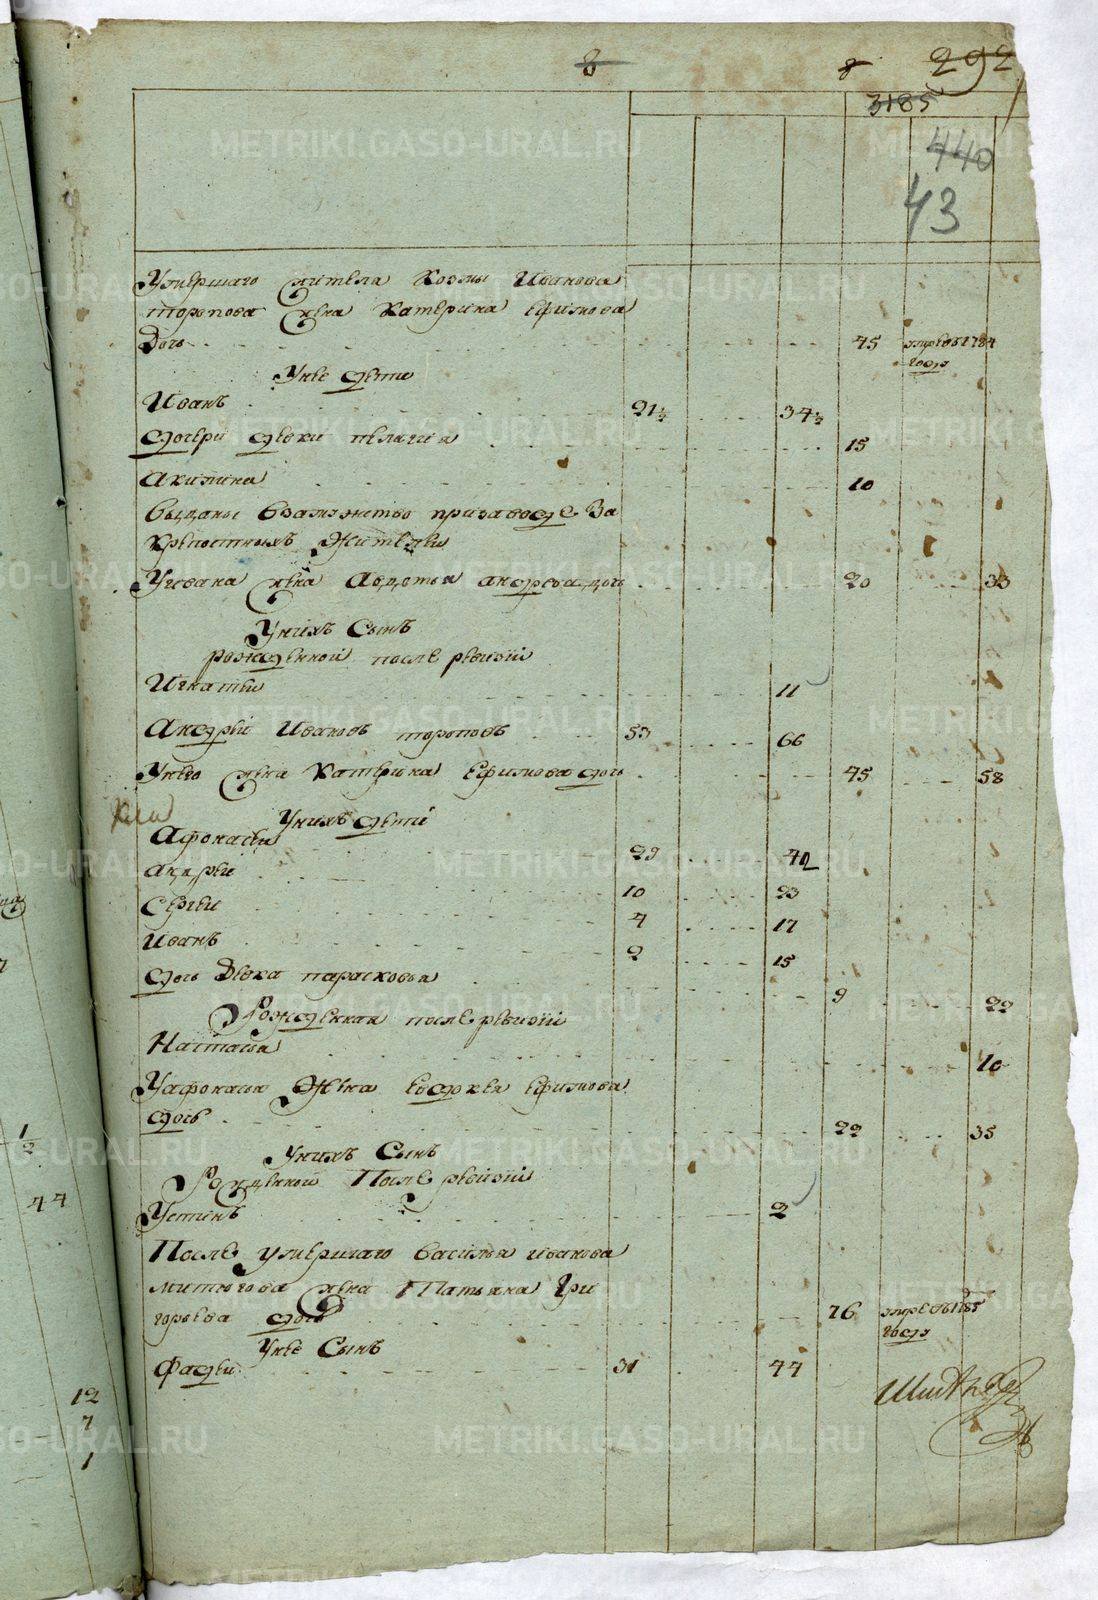 8 8 292
3185
440
43
Умершаго жителя Козмы Иванова
торопова жена Катерина Ефимова
Дочь 45 умре въ 1784
года
У нее дети
Иванъ 21½ 34½
дочери девки пелагея 15
акилина 10
выданы взамужство при заводе За
крепостныхъ Жителей
У Ивана жена Авдотья андреева дочь 20 33
У нихъ Сынъ
рожденной после ревизии
Игнатей 11
Андрей Ивановъ тороповъ 53 66
У него жена Катерина Ефимова дочь 45 58
У нихъ дети
Афонасей 29 42
андрей 10 23
Сергей 4 17
Иванъ 2 15
дочь Девка парасковья 9 22
Рожденная после ревизии
Настасья 10
У афонасья Жена Евдокея Ефимова
дочь 22 35
У нихъ Сынъ
Рожденной После ревизии
Устинъ 2
После умершаго василья иванова
митюгова жена Татьяна Гри
горьева дочь 76 умре въ 1785
года
У нее Сынъ
Фадей 31 44
1/2
44
12
7
1
METRIKI.GASO-URAL.RU